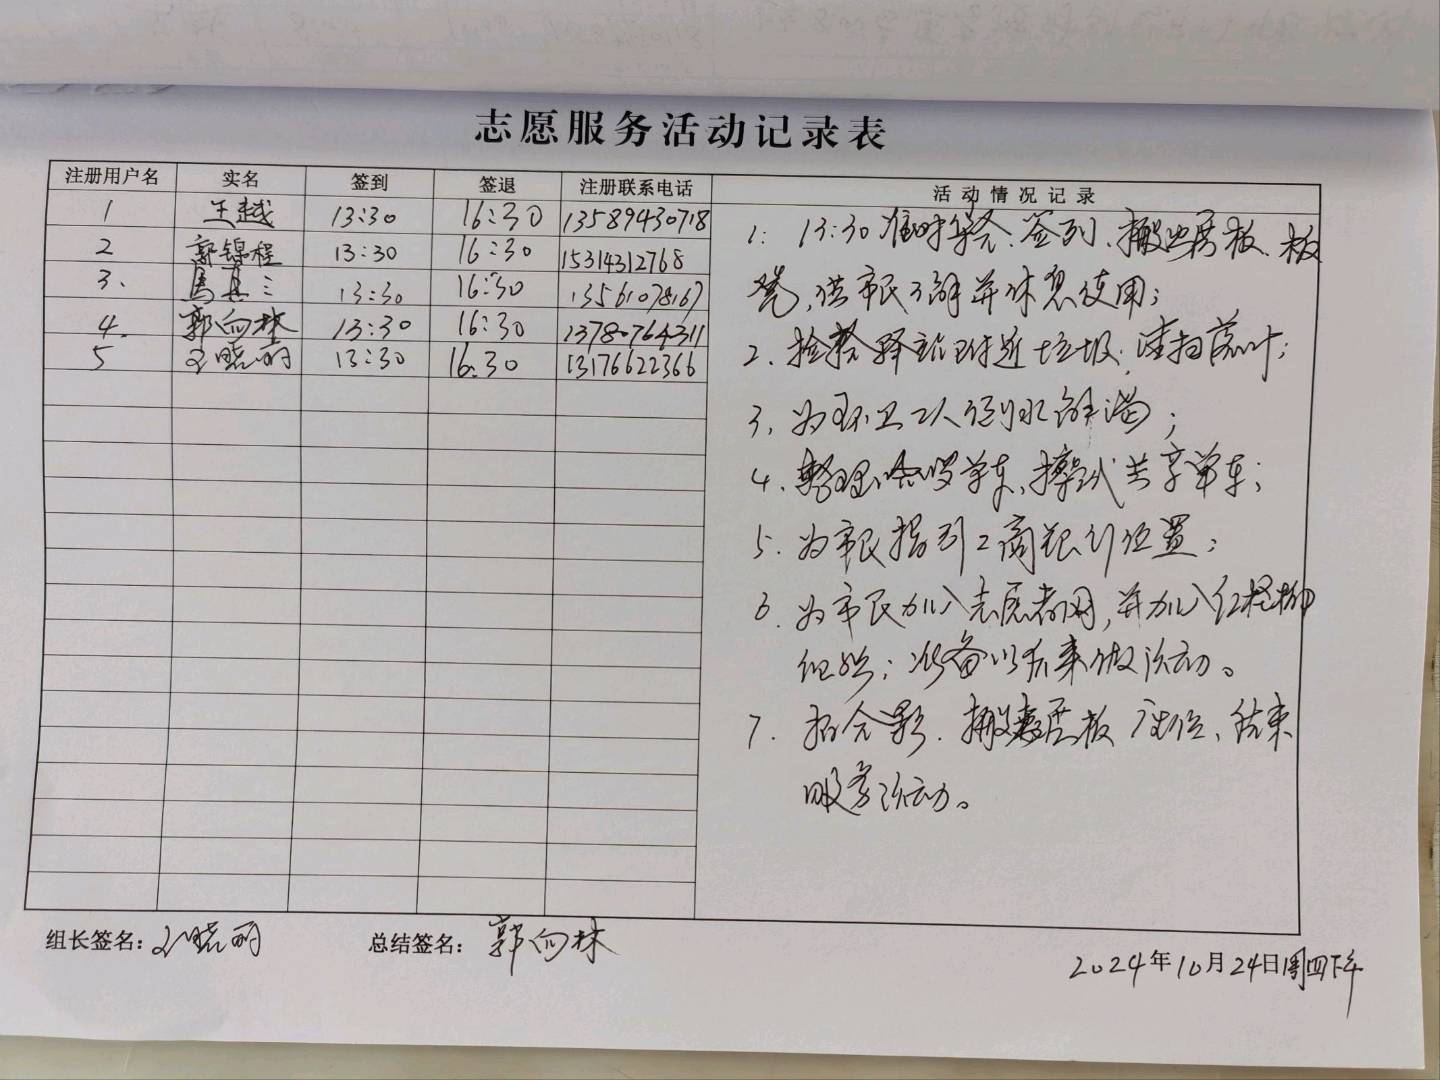 志愿服务活动记录表
注册用户名 实名 签到 签退 注册联系电话 活动情况记录
1 王越 13:30 16:30 13589430718
2 郭锦程 13:30 16:30 15314312768
3. 馬真三 13:30 16:30 13561078167
4. 郭向林 13:30 16:30 13780764311
5 王晓丽 13:30 16.30 13176622366
1: 13:30准时集合.签到、搬出展板、板
凳,供市民了解并休息使用;
2. 捡拾驿站附近垃圾,清扫落叶;
3、为环卫工人倒水解渴;
4、整理 单车、擦拭共享单车;
5. 为市民指引工商银行位置;
6. 为市民加入志愿者网,并加入红柽柳
组织;准备以后来做活动。
7. 拍合影.搬展板 座位、结束
服务活动。
组长签名:王晓丽 总结签名:郭向林
2024年10月24日周四下午